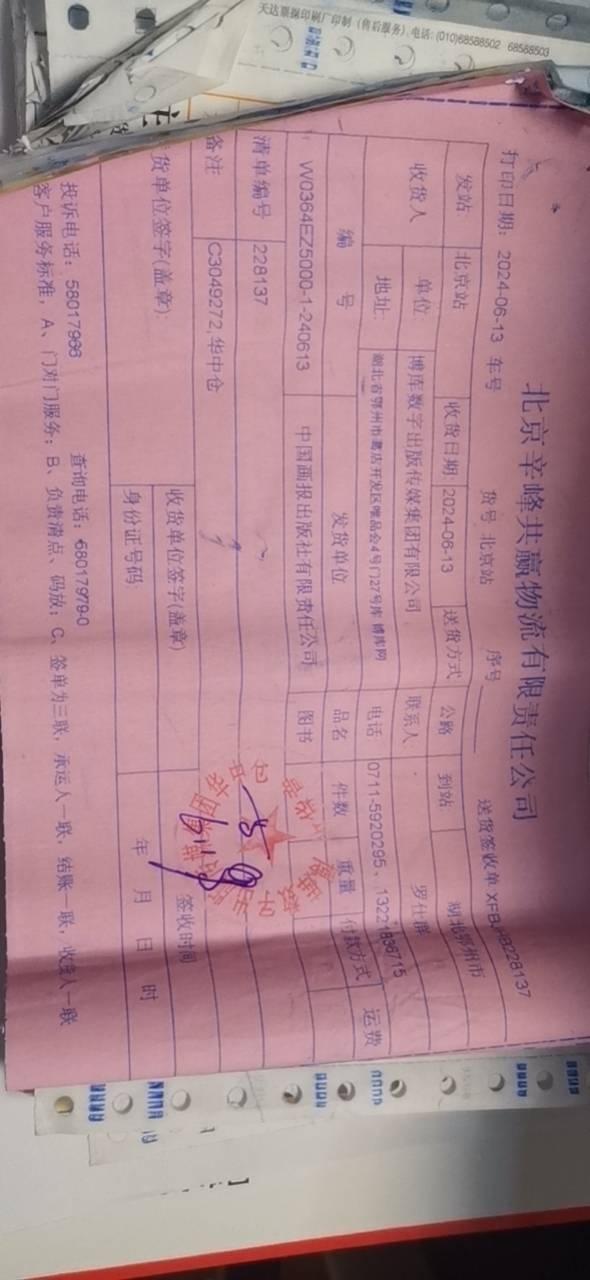 天达票据印刷厂印制 (售后服务) 电话: (010)68588502 68588503
北京辛峰共赢物流有限责任公司
送货签收单
打印日期: 2024-06-13 车号 货号 北京站 序号
发站 北京站 收货日期: 2024-06-13 送货方式 公路 到站 湖北鄂州市
收货人 单位: 博库数字出版传媒集团有限公司 联系人
地址: 湖北省鄂州市葛店开发区唯品会4号门27号库 博库网 电话 0711-5920295、13221836715
编号 发货单位 品名 件数 重量 付款方式 运费
W0364EZ5000-1-240613 中国画报出版社有限责任公司 图书
清单编号 228137
备注 C3049272,华中仓
货单位签字(盖章): 收货单位签字(盖章) 签收时间
身份证号码 年 月 日 时
投诉电话: 58017966 查询电话: 68017979-0
客户服务标准, A、门对门服务; B、负责清点、码放; C、签单为三联, 承运人一联, 结账一联, 收货人一联